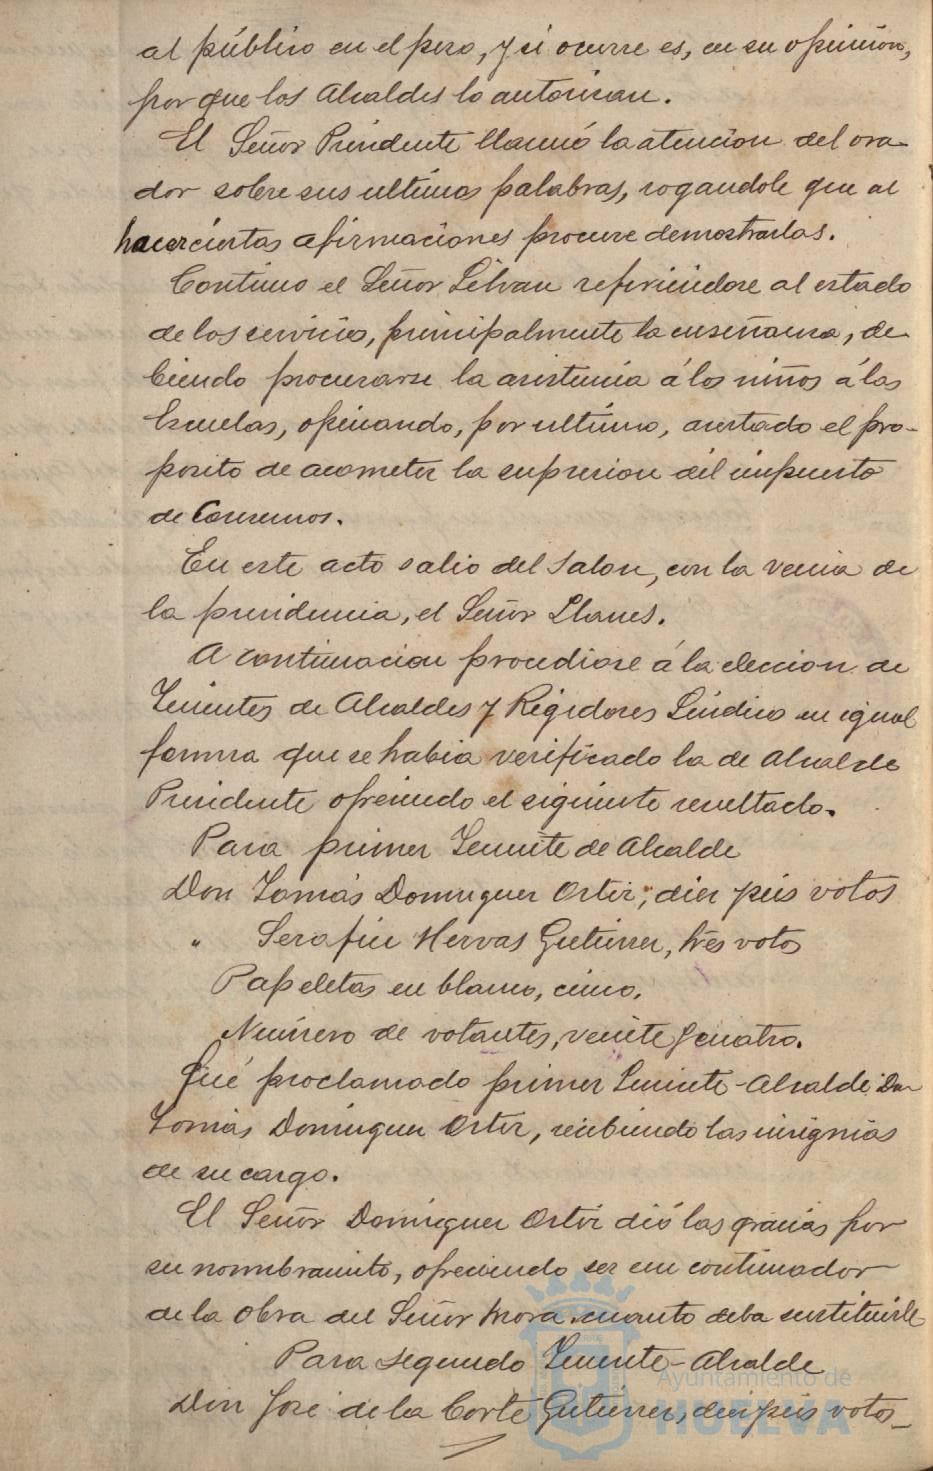 al público en el peso, y si ocurre es, en su opinión,
por que los Alcaldes lo autorizan.
El Señor Presidente llamó la atencion del ora-
dor sobre sus ultimas palabras, rogandole que al
hacer ciertas afirmaciones procure demostrarlas.
Continuo el Señor Silvan refiriendose al estado
de los servicios, principalmente la enseñanza, de-
biendo procurarse la asistencia á los niños á las
Escuelas, opinando, por ultimo, acertado el pro-
posito de acometer la supresion del impuesto
de Consumos.
En este acto salio del Salon, con la venia de
la presidencia, el Señor Llanes.
A continuacion procediose á la eleccion de
Tenientes de Alcaldes y Regidores Sindico en igual
forma que se habia verificado la de Alcalde
Presidente ofreciendo el siguiente resultado.
Para primer Teniente de Alcalde
Don Tomás Dominguez Ortiz, diez y seis votos
" Serafin Hervas Gutierrez, tres votos
Papeletas en blanco, cinco.
Número de votantes, veinte y cuatro.
Fué proclamado primer Teniente-Alcalde Don
Tomás Dominguez Ortiz, recibiendo las insignias
de su cargo.
El Señor Dominguez Ortiz dió las gracias por
su nombramiento, ofreciendo ser un continuador
de la obra del Señor Mora cuanto deba sustituirle
Para segundo Teniente-Alcalde
Don José de la Corte Gutierrez, diez y seis votos
Ayuntamiento de
HUELVA